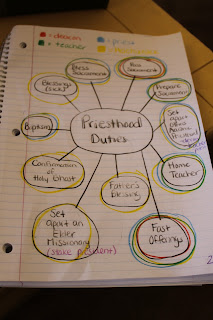 = deacon
= priest
= teacher
Bless Sacrament
Pass Sacrament
Blessings
(sick)
Prepare
Sacrament
Set
apart
other
Aaronic
Baptism
Priesthood
Duties
Home
Teacher
Confirmation
of
Holy Ghost
Father's
Blessing
Set
apart an
Elder
Missionary
(stake president)
Fast
Offerings
2